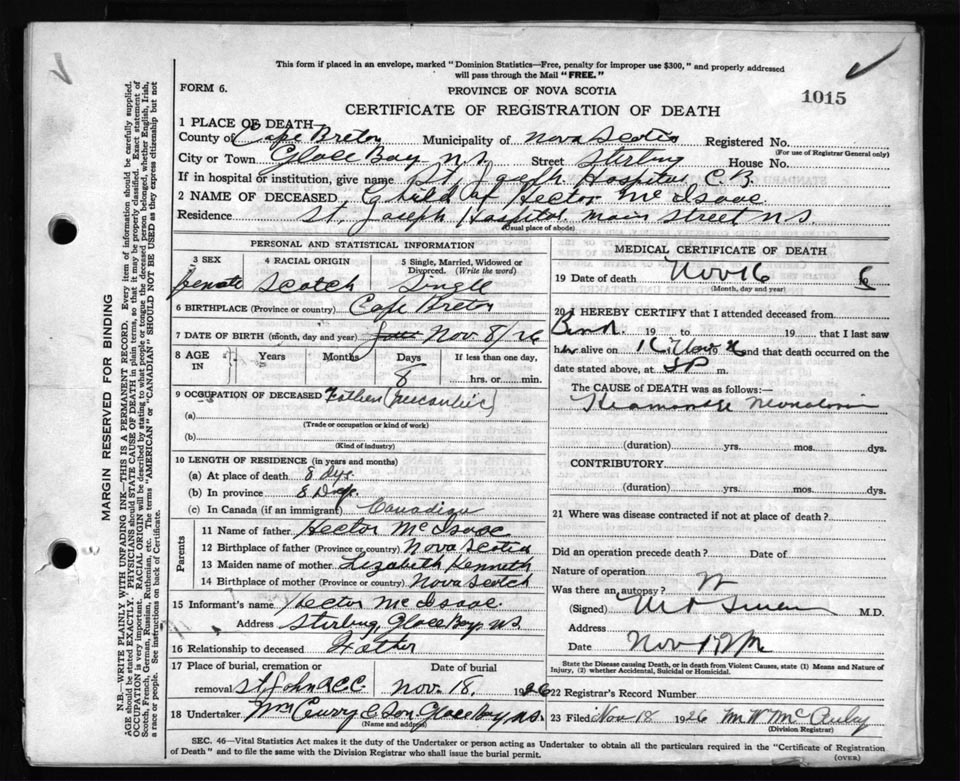 This form if placed in an envelope, marked "Dominion Statistics—Free, penalty for improper use $300," and properly addressed
will pass through the Mail "FREE."
FORM 6.
PROVINCE OF NOVA SCOTIA
1015
CERTIFICATE OF REGISTRATION OF DEATH
1 PLACE OF DEATH—
County of Cape Breton Municipality of Nova Scotia Registered No.
(For use of Registrar General only)
City or Town Glace Bay N.S. Street Stirling House No.
If in hospital or institution, give name St. Joseph Hospital C.B.
2 NAME OF DECEASED Child of Hector McIsaac
Residence St. Joseph Hospital Main Street N.S.
(Usual place of abode)
PERSONAL AND STATISTICAL INFORMATION
3 SEX 4 RACIAL ORIGIN 5 Single, Married, Widowed or Divorced. (Write the word)
female Scotch Single
6 BIRTHPLACE (Province or country) Cape Breton
7 DATE OF BIRTH (month, day and year) Nov. 8/26
8 AGE IN Years Months Days If less than one day,
8 hrs. or min.
9 OCCUPATION OF DECEASED Father (mechanic)
(a)
(Trade or occupation or kind of work)
(b)
(Kind of industry)
10 LENGTH OF RESIDENCE (in years and months)
(a) At place of death 8 Dys.
(b) In province 8 Dys.
(c) In Canada (if an immigrant) Canadian
Parents
11 Name of father Hector McIsaac
12 Birthplace of father (Province or country) Nova Scotia
13 Maiden name of mother Lizabeth Kenneth
14 Birthplace of mother (Province or country) Nova Scotch
15 Informant's name Hector McIsaac.
Address Stirling, Glace Bay N.S.
16 Relationship to deceased Father
17 Place of burial, cremation or removal St John RCC Date of burial Nov. 18, 1926
18 Undertaker Wm Curry & Son Glace Bay N.S.
(Name and address)
MEDICAL CERTIFICATE OF DEATH
19 Date of death Nov 16 6
(Month, day and year)
20 I HEREBY CERTIFY that I attended deceased from
Birth 19 to 19 that I last saw
her alive on 16 Nov 19 and that death occurred on
date stated above, at m.
The CAUSE OF DEATH was as follows:—
(duration) yrs. mos. dys.
CONTRIBUTORY
(duration) yrs. mos. dys.
21 Where was disease contracted if not at place of death?
Did an operation precede death? Date of
Nature of operation
Was there an autopsy?
(Signed) M.D.
Address
Date Nov
State the Disease causing Death, or in death from Violent Causes, state (1) Means and Nature of Injury, (2) whether Accidental, Suicidal or Homicidal.
22 Registrar's Record Number
23 Filed Nov 18 1926
(Division Registrar)
SEC. 46—Vital Statistics Act makes it the duty of the Undertaker or person acting as Undertaker to obtain all the particulars required in the "Certificate of Registration
of Death" and to file the same with the Division Registrar who shall issue the burial permit.
(OVER)
MARGIN RESERVED FOR BINDING
N.B.—WRITE PLAINLY WITH UNFADING INK—THIS IS A PERMANENT RECORD. Every item of information should be carefully supplied.
AGE should be stated EXACTLY. PHYSICIANS should STATE CAUSE OF DEATH in plain terms, so that it may be properly classified. Exact statement of
OCCUPATION is very important. RACIAL ORIGIN will be described by stating to what people or tongue the deceased person belonged, whether English, Irish,
Scotch, French, German, Russian, Ruthenian, etc. The terms "AMERICAN" or "CANADIAN" SHOULD NOT BE USED as they express citizenship but not
a race or people. See instructions on back of Certificate.